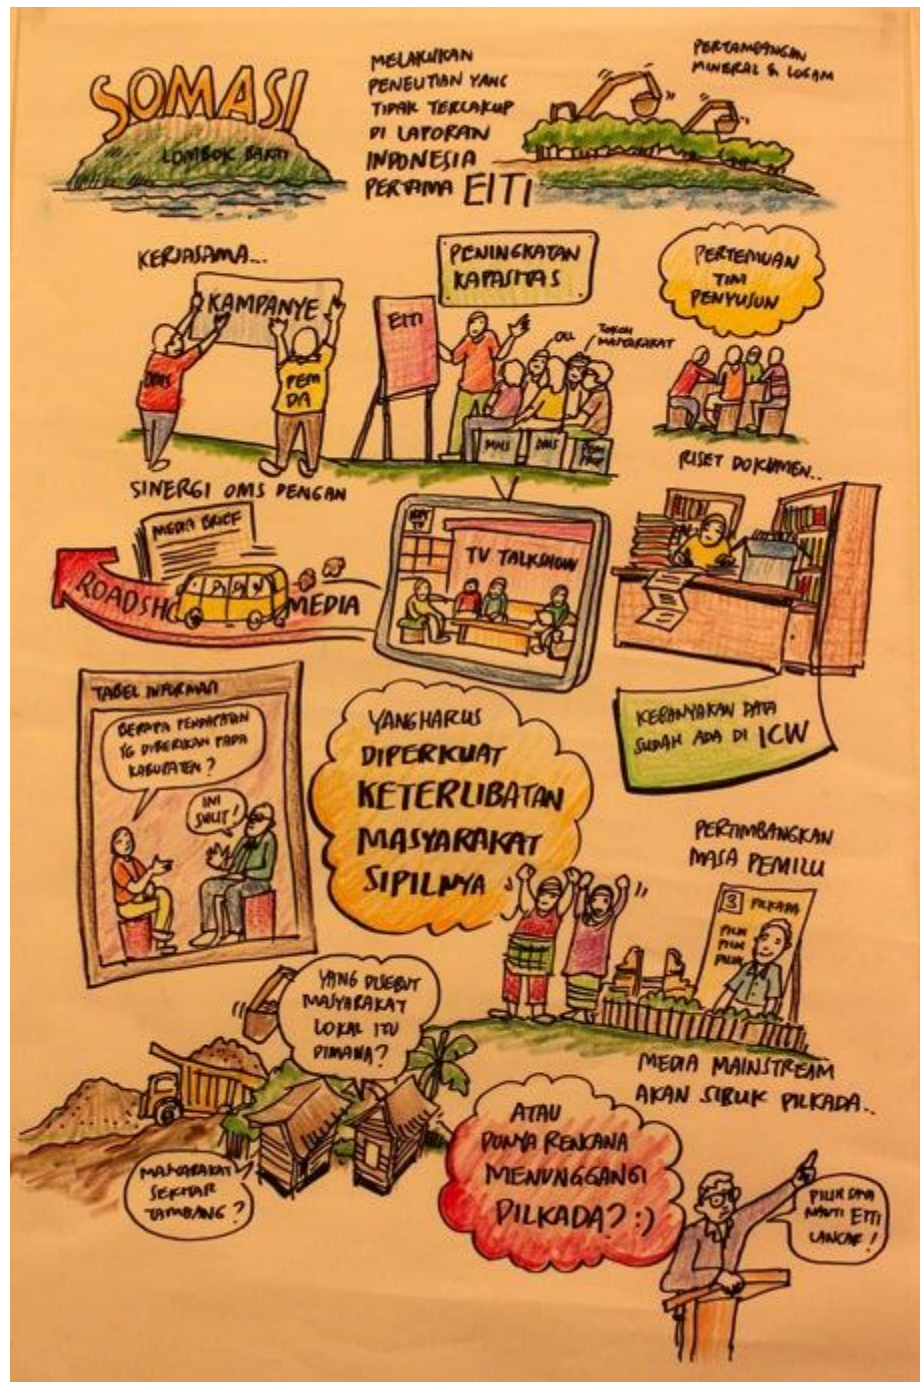 SOMASI
LOMBOK BARAT
MELAKUKAN
PENELITIAN YANG
TIDAK TERCAKUP
DI LAPORAN
INDONESIA
PERTAMA EITI
PERTAMBANGAN
MINERAL & LOGAM
KERJASAMA...
KAMPANYE
OMS
PEM
DA
PENINGKATAN
KAPASITAS
EITI
TOKOH
MASYARAKAT
PERTEMUAN
TIM
PENYUSUN
SINERGI OMS DENGAN
MEDIA BRIEF
ROADSHO
MEDIA
TV TALKSHOW
RISET DOKUMEN..
KEBANYAKAN DATA
SUDAH ADA DI ICW
TABEL INFORMASI
BERAPA PENDAPATAN
YG DIBERIKAN PADA
KABUPATEN?
INI
SULIT!
YANG HARUS
DIPERKUAT
KETERLIBATAN
MASYARAKAT
SIPILNYA
PERTIMBANGKAN
MASA PEMILU
3 PILKADA
PILIH
PILIH
PILIH
YANG DISEBUT
MASYARAKAT
LOKAL ITU
DIMANA?
MASYARAKAT
SEKITAR
TAMBANG?
MEDIA MAINSTREAM
AKAN SIBUK PILKADA..
ATAU
PUNYA RENCANA
MENUNGGANGI
PILKADA? :)
PILIH SAYA
NANTI EITI
LANCAR!